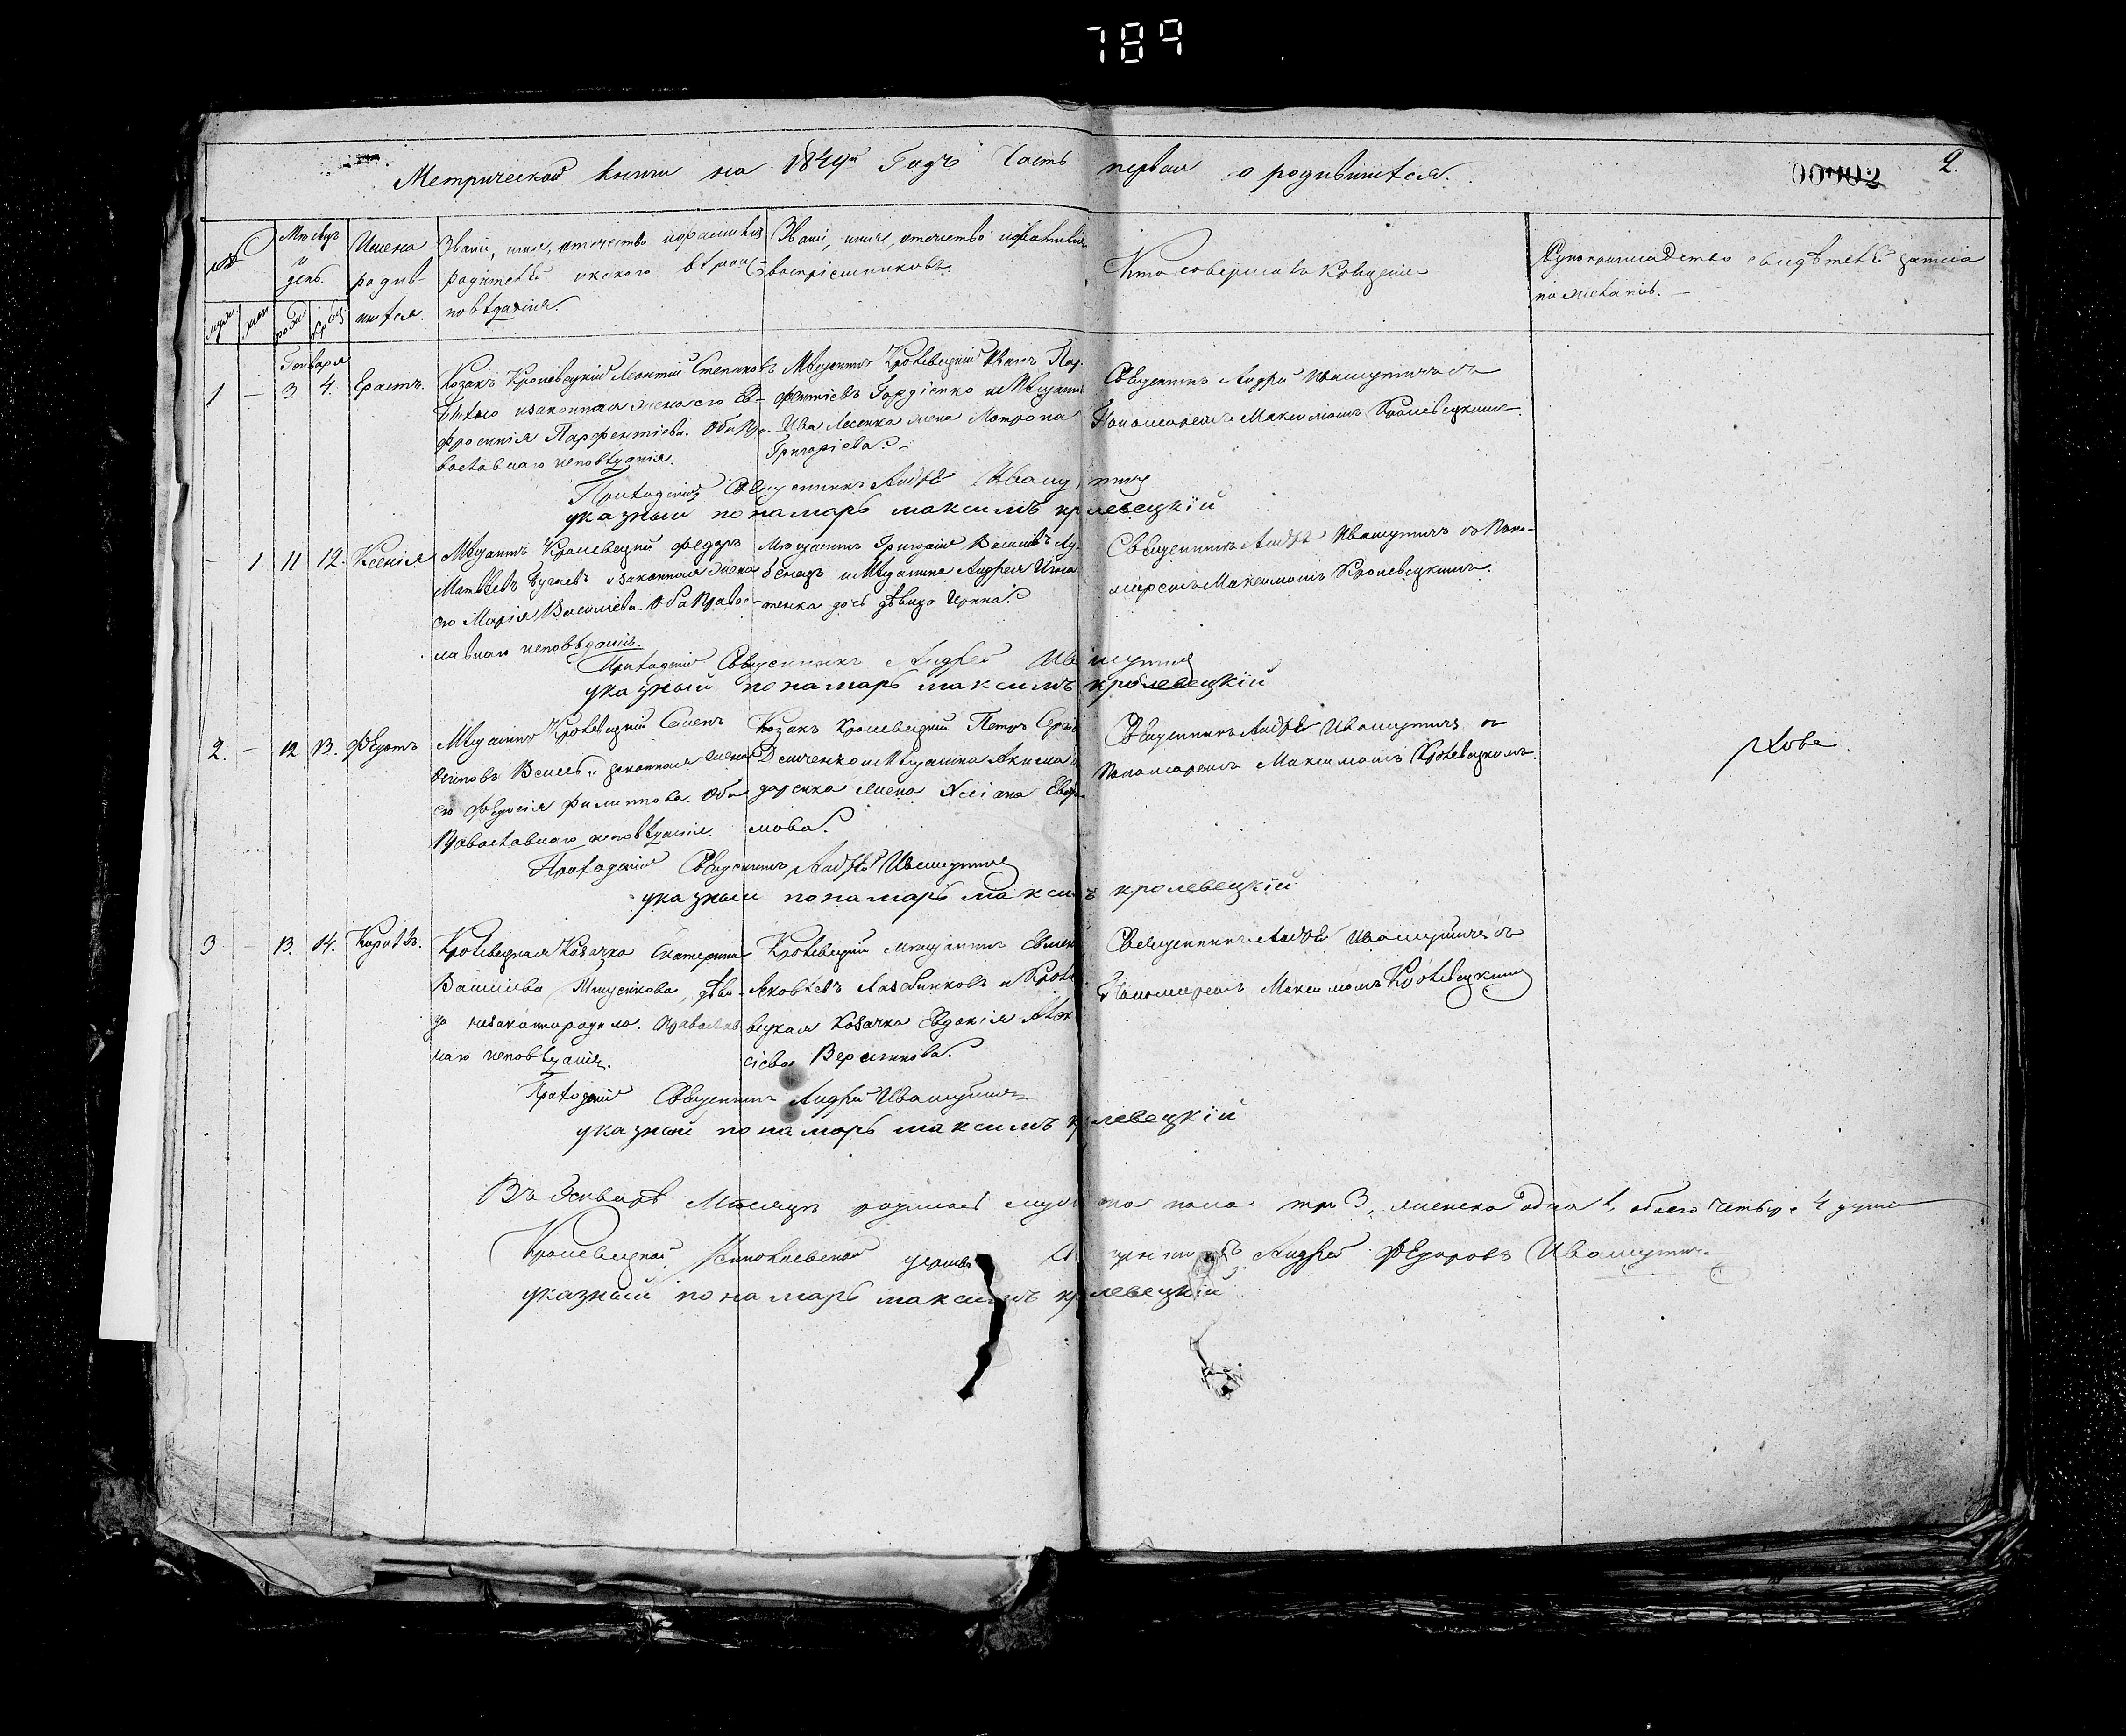 789
Метрической книги на 1849й Годъ Часть первая о родившихся.
00902
2.
Мѣсяцъ и день.
Имена родив-шихся.
Званіе, имя, отчество и фамилія родителей и какого вѣроисповѣданія.
Званіе, имя, отчество и фамилія воспріемниковъ.
Кто совершалъ крещеніе
Рукоприкладство свидѣтелей записи по желанію.
Генваря
1 — 3 4. Ерастъ.
Козакъ Кролевецкій Леонтій Степановъ
и законная жена его Ев-
фросинія Парфентіева. Оба Пра-
вославнаго исповѣданія.
Мѣщанинъ Кролевецкій Иванъ Пар-
фентіевъ Гордіенко и Мѣщанина
жена Матрона
Григоріева.
Священникъ Андрей Ивашутичъ съ
Пономаремъ Максимомъ Кролевецкимъ.
Приходскій Священникъ Андрей Ивашутичъ
указный понамарь максимъ кролевецкій
— 1 11 12. Ксенія
Мѣщанинъ Кролевецкій Федоръ
Матвѣевъ и законная жена
его Марія Васильева. Оба Правос-
лавнаго исповѣданія.
Мѣщанинъ Григорій Васильевъ
и Мѣщанина Андрея Игна-
тенка дочь дѣвица Ирина.
Священникъ Андрей Ивашутичъ съ Поно-
маремъ Максимомъ Кролевецкимъ.
Приходскій Священникъ Андрей Ивашутичъ
указный понамарь максимъ кролевецкій
2. — 12 13. Федотъ
Мѣщанинъ Кролевецкій Семенъ
Осиповъ законная жена
его Феодосія Филиппова. Оба
Православнаго исповѣданія.
Козакъ Кролевецкій Петръ
Демченко и Мѣщанина
жена Уліана
Священникъ Андрей Ивашутичъ съ
Пономаремъ Максимомъ Кролевецкимъ.
Приходскій Священникъ Андрей Ивашутичъ
указный понамарь максимъ кролевецкій
3 — 13. 14. Кирилъ.
Кролевецкая Козачка Екатерина
Васильева дѣви-
ца незаконнородила. Православ-
наго исповѣданія.
Кролевецкій мѣщанинъ
Яковлевъ и Кроле-
вецкая Козачка Евдокія Алек-
сіева
Священникъ Андрей Ивашутичъ съ
Пономаремъ Максимомъ Кролевецкимъ
Приходскій Священникъ Андрей Ивашутичъ
указный понамарь максимъ кролевецкій
Въ Январѣ Мѣсяцѣ родилось мужска пола три 3, женска одна 1, обоего четыре 4 души
Кролевецкой церкви Священникъ Андрей Федоровъ Ивашутичъ
указный понамарь максимъ кролевецкій